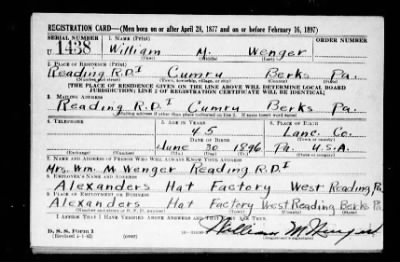 REGISTRATION CARD—(Men born on or after April 28, 1877 and on or before February 16, 1897)
SERIAL NUMBER 1. NAME (Print) ORDER NUMBER
U 1438 William M. Wenger
(First) (Middle) (Last)
2. PLACE OF RESIDENCE (Print)
Reading R.D.1 Cumru Berks Pa.
(Number and street) (Town, township, village, or city) (County) (State)
[THE PLACE OF RESIDENCE GIVEN ON THE LINE ABOVE WILL DETERMINE LOCAL BOARD
JURISDICTION; LINE 2 OF REGISTRATION CERTIFICATE WILL BE IDENTICAL]
3. MAILING ADDRESS
Reading R.D.1 Cumru Berks Pa.
[Mailing address if other than place indicated on line 2. If same insert word same]
4. TELEPHONE 5. AGE IN YEARS 6. PLACE OF BIRTH
45 Lanc. Co.
DATE OF BIRTH (Town or county)
June 30 1896 Pa. U.S.A.
(Exchange) (Number) (Mo.) (Day) (Yr.) (State or country)
7. NAME AND ADDRESS OF PERSON WHO WILL ALWAYS KNOW YOUR ADDRESS
Mrs. Wm. M. Wenger Reading R.D.1
8. EMPLOYER'S NAME AND ADDRESS
Alexanders Hat Factory West Reading Pa.
9. PLACE OF EMPLOYMENT OR BUSINESS
Alexanders Hat Factory West Reading Berks Pa
(Number and street or R. F. D. number) (Town) (County) (State)
I AFFIRM THAT I HAVE VERIFIED ABOVE ANSWERS AND THAT THEY ARE TRUE.
D. S. S. Form 1 William M Wenger
(Revised 4-1-42) (over)